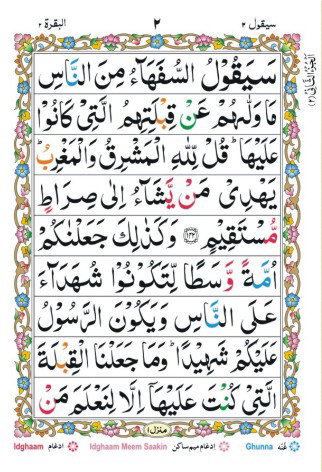 سيقول ٢ ٢ البقرة ٢
سَيَقُوۡلُ السُّفَهَآءُ مِنَ النَّاسِ
مَا وَلّٰٮهُمۡ عَنۡ قِبۡلَتِهِمُ الَّتِىۡ كَانُوۡا
عَلَيۡهَا ؕ قُلۡ لِّلّٰهِ الۡمَشۡرِقُ وَالۡمَغۡرِبُ ؕ
يَهۡدِىۡ مَنۡ يَّشَآءُ اِلٰى صِرَاطٍ
مُّسۡتَقِيۡمٍ ﴿۱۴۲﴾ وَكَذٰلِكَ جَعَلۡنٰكُمۡ
اُمَّةً وَّسَطًا لِّتَکُوۡنُوۡا شُهَدَآءَ
عَلَى النَّاسِ وَيَكُوۡنَ الرَّسُوۡلُ
عَلَيۡكُمۡ شَهِيۡدًا ؕ وَمَا جَعَلۡنَا الۡقِبۡلَةَ
الَّتِىۡ كُنۡتَ عَلَيۡهَآ اِلَّا لِنَعۡلَمَ مَنۡ
منزل ۱
Idghaam ادغام Idghaam Meem Saakin ادغام میم ساکن Ghunna غنہ